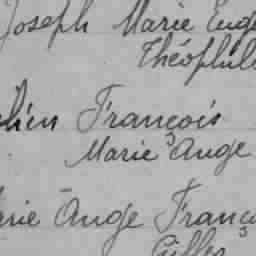 Joseph Marie Eugè
Théophile
lien François
Marie Ange
arie Ange Franço
Gilles